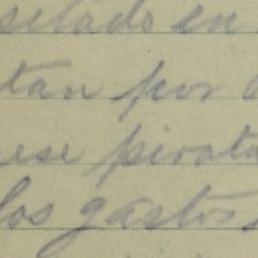 selado en
tan por
ese pirata
los gastos